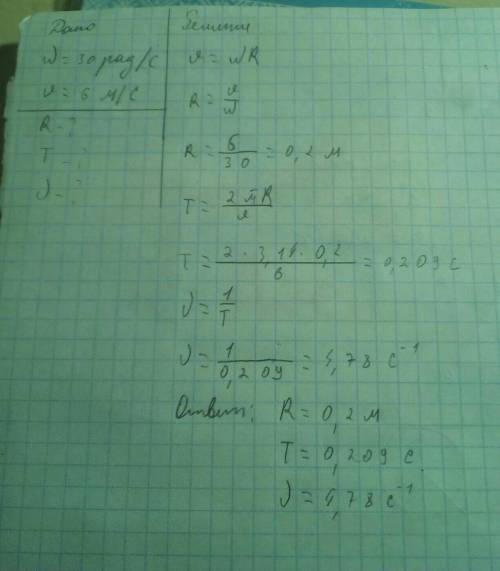 Дано
ω = 30 рад/с
υ = 6 м/с
R - ?
T - ?
ν - ?
Решение
υ = ωR
R = υ/ω
R = 6/30 = 0,2 м
T = 2πR/υ
T = 2 · 3,14 · 0,2/6 = 0,209 с
ν = 1/T
ν = 1/0,209 = 4,78 с⁻¹
Ответ: R = 0,2 м
T = 0,209 с
ν = 4,78 с⁻¹